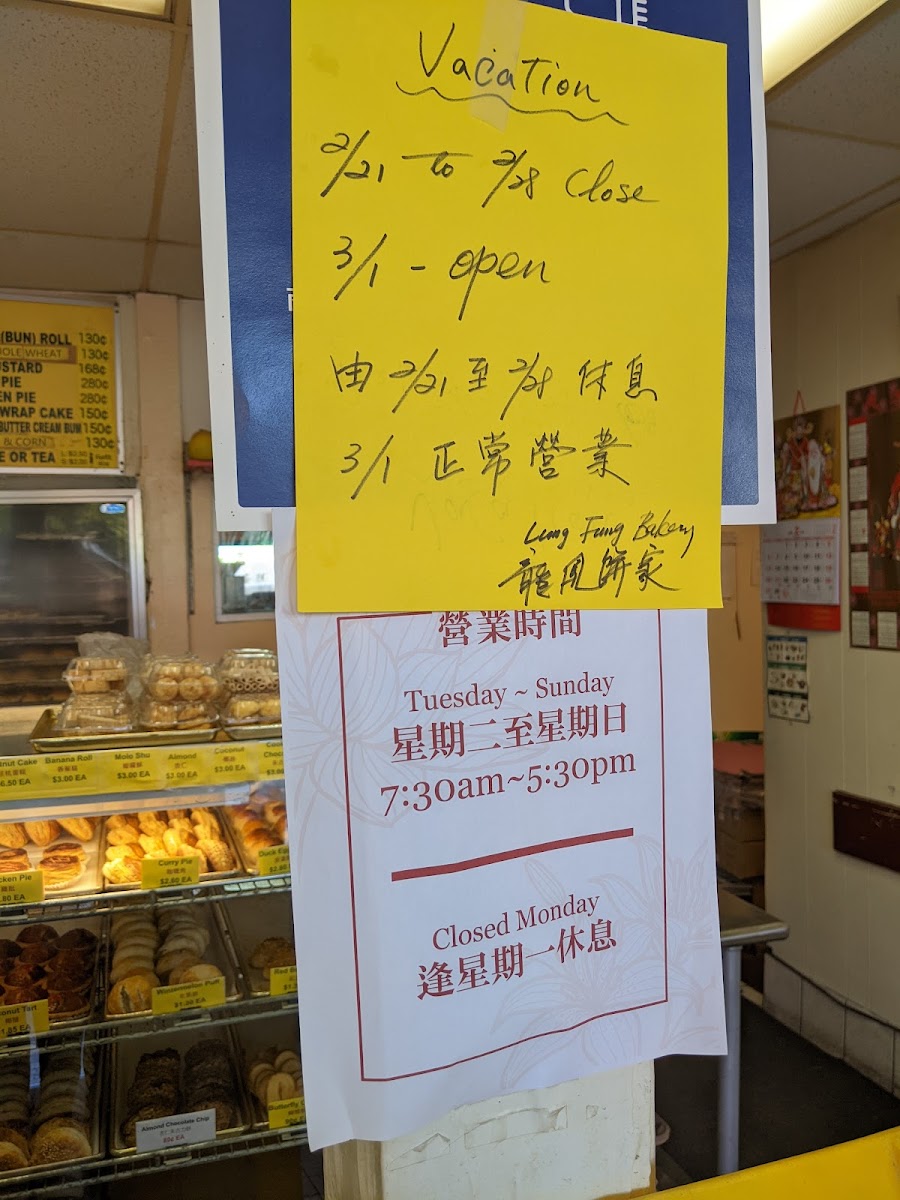 Vacation
2/21 to 2/28 Close
3/1 - open
由 2/21 至 2/28 休息
3/1 正常營業
Lung Fung Bakery
龍鳳餅家
營業時間
Tuesday ~ Sunday
星期二至星期日
7:30am~5:30pm
Closed Monday
逢星期一休息
(BUN) ROLL 130¢
OLE WHEAT 130¢
USTARD 168¢
PIE 280¢
EN PIE 280¢
WRAP CAKE 150¢
BUTTER CREAM BUM 150¢
& CORN 130¢
E OR TEA
nut Cake
6.50 EA
Banana Roll
$3.00 EA
Molo Shu
$3.00 EA
Almond
$3.00 EA
Coconut
$3.00 EA
cken Pie
.80 EA
Curry Pie
$2.80 EA
Duck E
$2.80
onut Tart
1.85 EA
Watermelon Puff
Red B
Almond Chocolate Chip
Butterfly